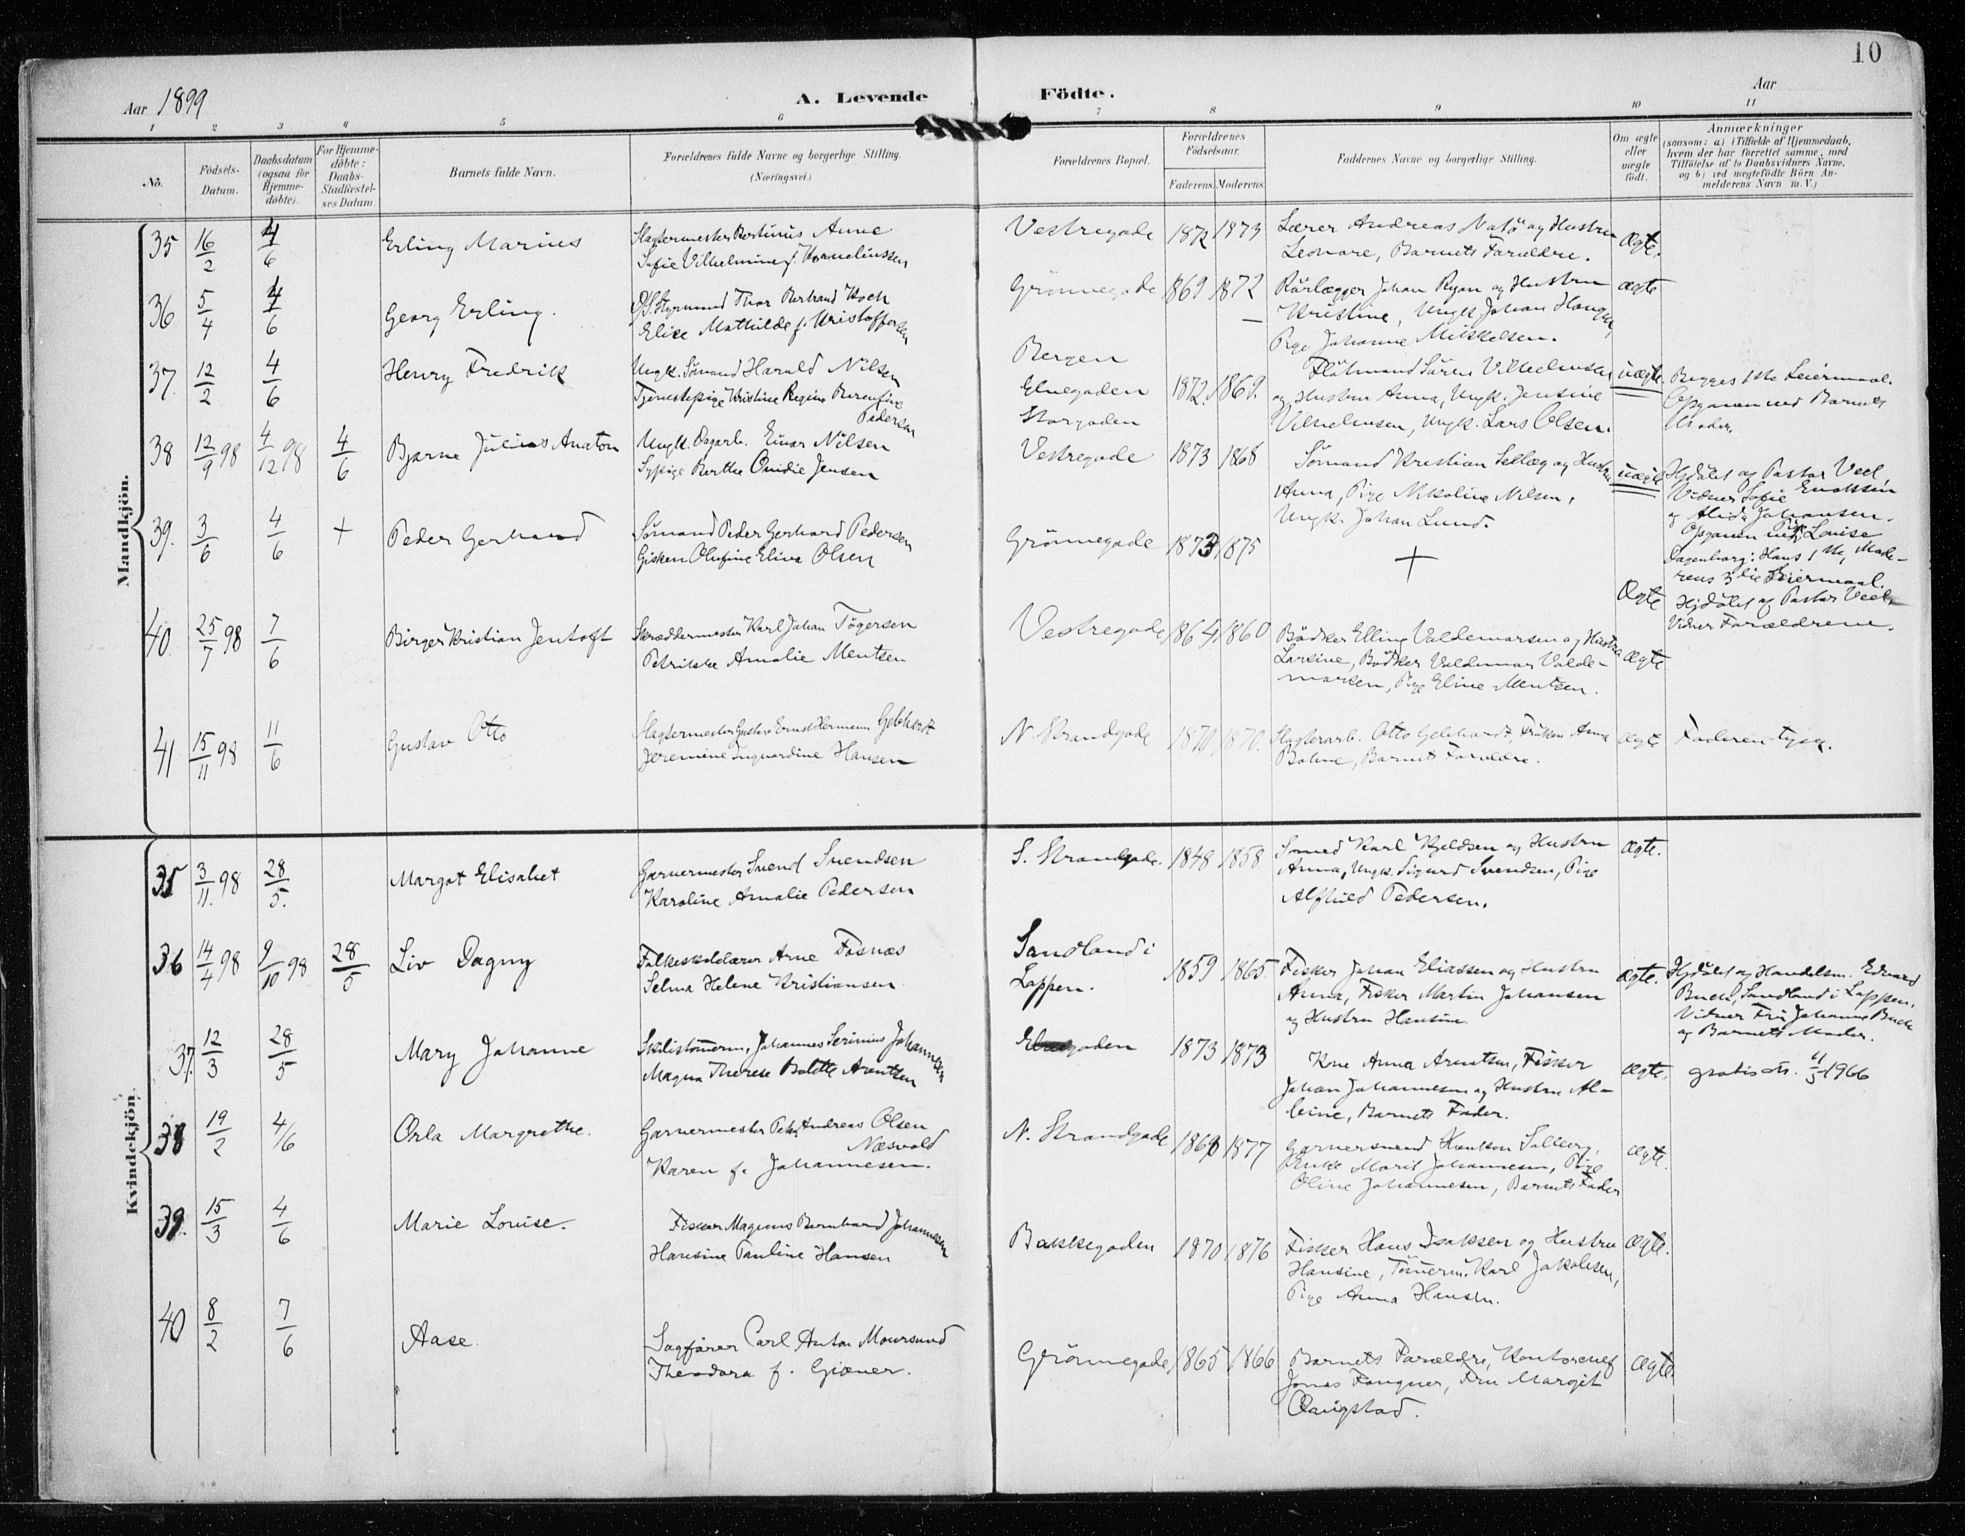 10
Aar 1899
A. Levende Födte.
Aar
1 2 3 4 5 6 7 8 9 10 11
No.
Födsels-Datum.
Daabsdatum (ogsaa for Hjemme-döbte).
For Hjemme-döbte: Daabs-Stadfæstel-ses Datum.
Barnets fulde Navn.
Forældrenes fulde Navne og borgerlige Stilling. (Næringsvei.)
Forældrenes Bopæl.
Forældrenes Födselsaar.
Faderens. Moderens.
Faddernes Navne og borgerlige Stilling.
Om ægte eller uægte födt.
Anmærkninger
(saasom: a) i Tilfælde af Hjemmedaab,
hvem der har forrettet samme, med
Tilföielse af to Daabsvidners Navne,
og b) ved uægtefödte Börn An-
melderens Navn m. V.)
Mandkjön.
35 16/2 4/6 Erling Marius
Slagtermester Bertinius Anne
Sofie Vilhelmine f. Kornelinssen
Vestregade 1872 1873
Lærer Andreas og Hustru
Leonore, Barnets Forældre.
Ægte.
36 5/4 4/6 Georg Erling.
Styrmand Thor Bertrand Koch
Elise Mathilde f. Kristoffersen
Grönnegade 1869 1872
Rörlægger Johan Ryan og Hustru
Kristine, Ungk. Johan
Pige Johanne Mikkelsen.
ægte
37. 12/2 4/6 Henry Fredrik
Ungk. Sömand Harald Nilsen
Tjenestepige Kristine Regine Berentine
Pedersen
Bergen
Elvegaden
Storgaden
1872. 1869.
Flötmand Sören Vilhelmsen
og Hustru Anna, Ungk. Jensine
Vilhelmsen, Ungk. Lars Olsen.
uægte.
Begges 1ste Leiermaal.
Opgaven ved Barnets
Moder.
38 12/9 98 4/12 98 4/6 Bjarne Julius Anaton
Ungk. Dagarb. Einar Nilsen
Sypige Berthe Ovidie Jensen
Vestregade 1873 1868
Sömand Kristian Selleg og Hustru
Anna, Pige Nikoline Nilsen,
Ungk. Johan Lund.
uægte
Hjdöbt af Pastor Veel
Vidner Sofie Enoksen
og Alida Johansen.
Opgaven ved Pige Louise
Dagenborg. Hans 1ste, Mode-
rens 3die Leiermaal.
39. 3/6 4/6 + Peder Gerhard
Sömand Peder Gerhard Pedersen
Gisken Olufine Elina Olsen
Grönnegade 1873 1875
+
Ægte
Hjdöbt af Pastor Veel
Vidner Forældrene.
40. 25/7 98 7/6 Birger Kristian Jentoft
Skrædermester Karl Johan Tögersen
Petrikke Amalie Mentsen
Vestregade 1864 1860
Bödker Elling Valdemarsen og Hustru
Larsine, Bödker Valdemar Valde-
marsen, Pige Eline Mentsen.
ægte
41 15/11 98 11/6 Gustav Otto
Slagtermester Gustav Ernst Hermann Gebhardt
Jeremine Ingvardine Hansen
N. Strandgade 1870 1870.
Slagterarb. Otto Gebhardt, Fröken Anna
Bohne, Barnets Forældre.
ægte
Faderen tysk.
Kvindekjön.
35 3/11. 98 28/5. Margot Elisabet
Garvermester Svend Svendsen
Karoline Amalie Pedersen
S. Strandgade. 1848 1858
Smed Karl Kjeldsen og Hustru
Anna, Ungk. Sigurd Svendsen, Pige
Alfhild Pedersen.
Ægte.
36 14/4 98 9/10 98 28/5 Liv Dagny
Folkeskolelærer Arne Fosnæs
Selma Helene Kristiansen.
Sandland i
Loppen.
1859 1865.
Fisker Johan Eliassen og Hustru
Anna, Fisker Martin Johansen
og Hustru Hansine.
ægte.
Hjdöbt af Handelsm. Edvard
Buch, Sandland i Loppen.
Vidner Fru Johanne Buck
og Barnets Moder.
37. 12/3 28/5 Mary Johanne
Skibstömrm. Johannes Serinius Johannesen
Magna Therese Bolette Arentsen
Elvegaden 1873 1873
Kone Anna Arentsen, Fisker
Johan Johannesen og Hustru Al-
bine, Barnets Fader.
ægte.
gratis att. 11/3 1966
38 19/2 4/6 Orla Margrethe.
Garvermester Peter Andreas Olsen
Næsvold
Karen f. Johannesen.
N. Strandgade 1869 1877
Garversvend Haakon Solberg,
Enke Marit Johannesen, Pige
Oline Johannesen, Barnets Fader
ægte.
39. 15/3 4/6 Marie Louise.
Fisker Magnus Bernhard Johannesen
Hansine Pauline Hansen
Bakkegaden 1870 1876
Fisker Hans Isaksen og Hustru
Hansine, Tömrerm. Karl Jakobsen,
Pige Anna Hansen.
Ægte.
40 8/2 7/6 Aase.
Sagförer Carl Anton Moursund
Theodora f. Giæver.
Grönnegade 1865 1866
Barnets Forældre, Kontorchef
Jonas Fangner, Fru Margit
Qvigstad.
Ægte.